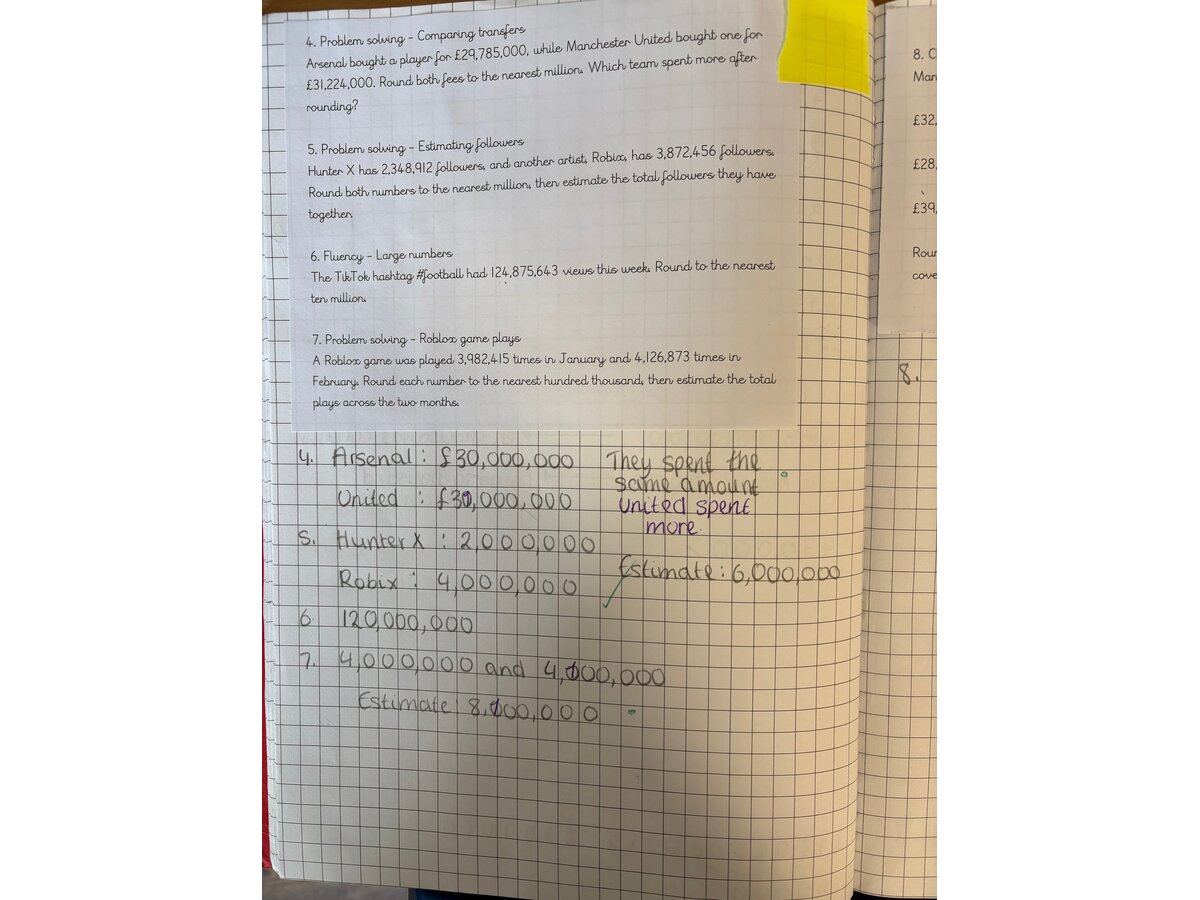 4. Problem solving - Comparing transfers
Arsenal bought a player for £29,785,000, while Manchester United bought one for
£31,224,000. Round both fees to the nearest million. Which team spent more after
rounding?
5. Problem solving - Estimating followers
Hunter X has 2,348,912 followers, and another artist, Robix, has 3,872,456 followers.
Round both numbers to the nearest million, then estimate the total followers they have
together.
6. Fluency - Large numbers
The TikTok hashtag #football had 124,875,643 views this week. Round to the nearest
ten million.
7. Problem solving - Roblox game plays
A Roblox game was played 3,982,415 times in January and 4,126,873 times in
February. Round each number to the nearest hundred thousand, then estimate the total
plays across the two months.
4. Arsenal: £30,000,000 They spent the
same amount
United : £31,000,000 United spent
more.
5. Hunter X : 2,000,000
Robix : 4,000,000 Estimate: 6,000,000
6 120,000,000
7. 4,000,000 and 4,100,000
Estimate: 8,100,000
8. C
Man
£32,
£28,
£39,
Roun
cove
8.